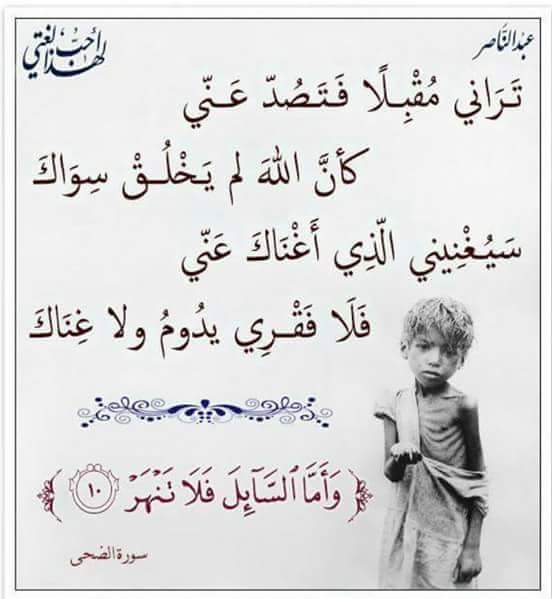 عبدالناصر
لهذا أحب لغتي
تَرَاني مُقْبِلًا فَتَصُدّ عَنّي
كأنَّ اللهَ لم يَخْلُقْ سِوَاكَ
سَيُغْنِيني الّذِي أَغْنَاكَ عَنّي
فَلَا فَقْرِي يدُومُ ولا غِنَاكَ
﴿ وَأَمَّا ٱلسَّآئِلَ فَلَا تَنْهَرْ ١٠ ﴾
سورة الضحى